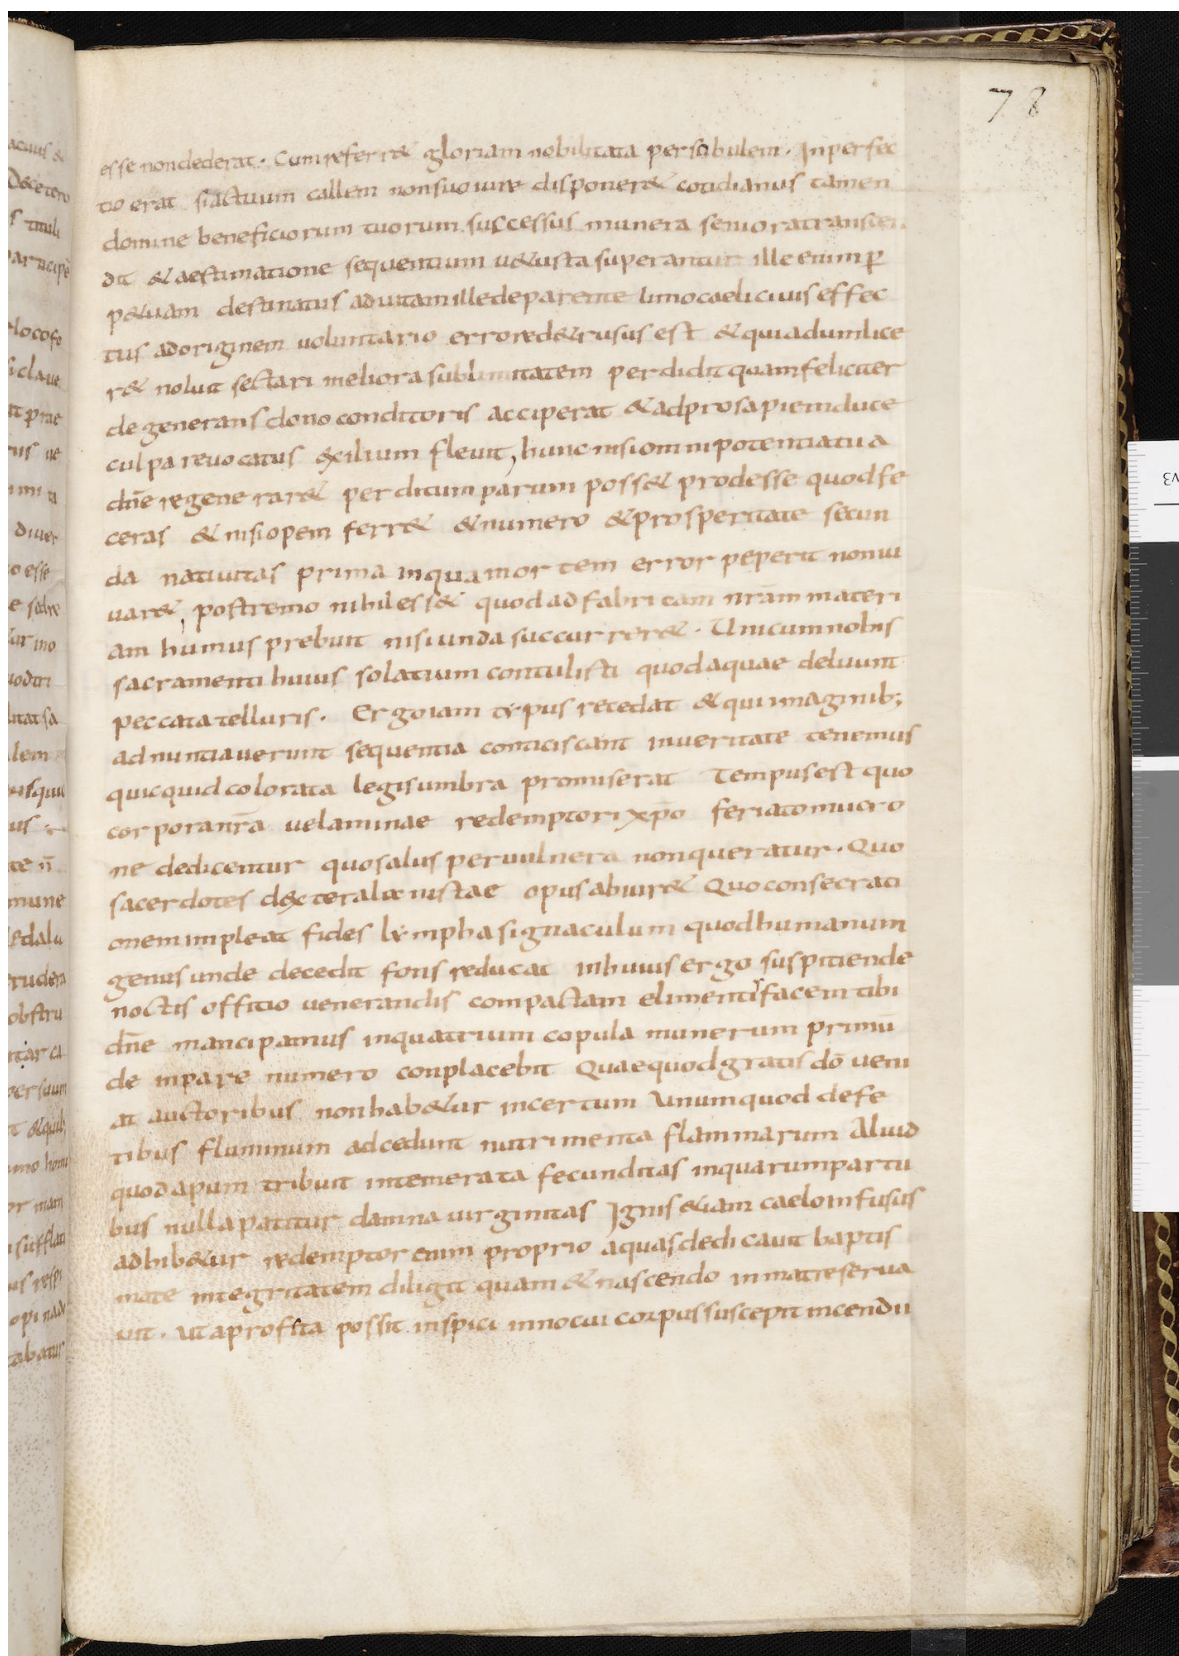 78
esse nondederat. Cumreferr& gloriam nobilitata persobulem. Inperfec
tio erat siactuum callem nonsuoiure disponer& cotidianus tamen
domine beneficiorum tuorum successus munera semoratranscen
dit &aestimatione sequentium u&usta superantur ille enim ꝑ
p&uam destinatus aduitamilledeparente limocaeliciuis effec
tus adoriginem uoluntario errored&rusus est &quiadumlice
r& noluit sectari meliorasublimitatem perdidit quamfeliciter
degenerans dono conditoris acciperat &adprosapiemduce
culparevocatus exilium fleuit, hunc nisiomnipotentiatua
dn̄e regenerar& perditum parum poss& prodesse quodfe
ceras &nisiopem ferr& &numero &prosperitate secun
da natiuitas prima inquamortem error peperit nonui
uar&, postremo nihiless& quodadfabricam nr̄am materi
am humus prebuit nisiundasuccurrer&. Unicumnobis
sacramenti huius solatium contulisti quodaquae deluunt
peccatatelluris. Ergoiam typus recedat &quiimaginib;
adnuntiauerunt sequentia conticiscant inueritate tenemus
quicquidcolorata legisumbra promiserat Tempusest quo
corporanr̄a uelaminae redemptori xp̄o feriatomucro
ne dedicentur quosalus peruulnera nonqueratur. Quo
sacerdotes dexteralixiuistae opusabuir& Quoconsecrati
onemimpleat fides lymphasignaculum quodhumanum
genusunde decedit fons reducat inhuius ergo suspitiende
noctis offitio uenerandis compactam elimentisfacemtibi
dn̄e mancipamus inquatrium copula munerum primū
de inpare numero conplacebit Quaequodgratis dō ueni
at auctoribus nonhab&ur incertum Unumquod defe
tibus fluminum adcedunt nutrimenta flammarum Aliud
quodapum tribuit intemerata fecunditas inquarumpartu
bus nullapatitur damnauirginitas Ignis &iam caeloinfusus
adhib&ur redemptor enim proprio aquasdedicauit baptis
mate integritatem diligit quam&nascendo inmatreserua
uit. utaprofeta possit inspici innocui corpussuscepit incendii